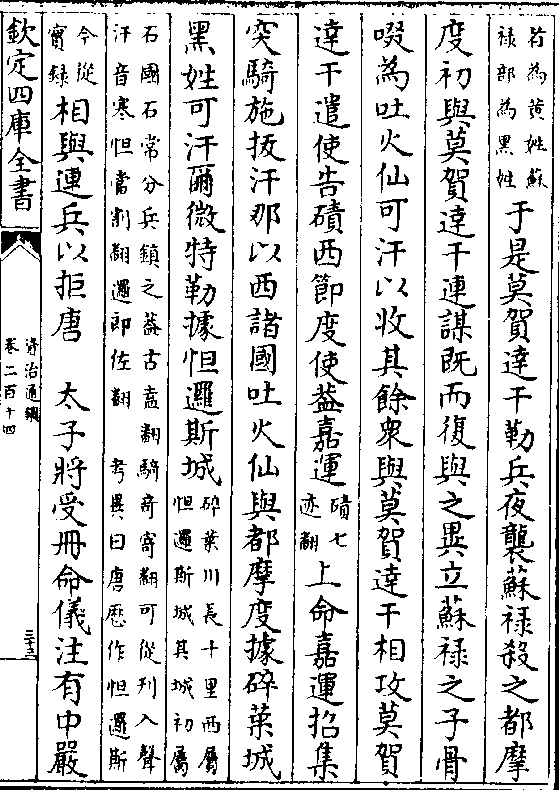 苻為黄姓蘇
祿部為黒姓
于是莫賀達干勒兵夜襲蘇祿殺之都摩
度初與莫賀達干連謀既而復與之異立蘇祿之子骨
啜為吐火仙可汗以收其餘衆與莫賀達干相攻莫賀
達干遣使告磧西節度使蓋嘉運
磧七
迹翻
上命嘉運招集
突騎施拔汗那以西諸國吐火仙與都摩度據碎葉城
黑姓可汗爾微特勒據怛邏斯城
碎葉川長千里西屬
怛邏斯城其城初屬
石國石常分兵鎮之蓋古盍翻騎奇寄翻可從刋入聲
汗音寒怛當割翻邏郎佐翻 考異曰唐厯作怛邏斯
今從
實録
相與連兵以拒唐 太子將受冊命儀注有中嚴
欽定四庫全書
資治通鑑
卷二百十四
三十三